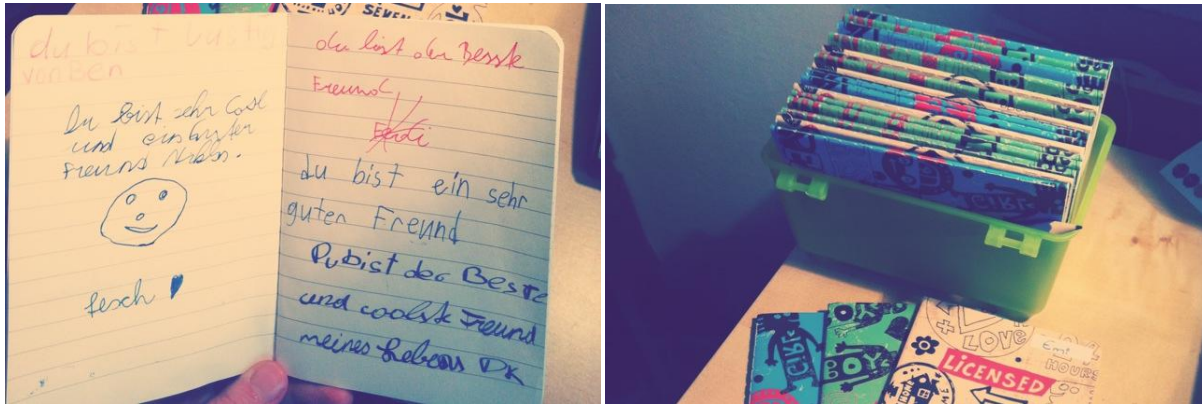 SEVEN
du bist lustig
vonBen
Du bist sehr Cool
und ein guter
Freund
fesch
du bist der Besste
Freund
Ferdi
du bist ein sehr
guten Freund
Du bist der Beste
und coolste Freund
meines Lebens DK
GIRL
GIRL
BOY
LOVE
LICENSED
HOURS